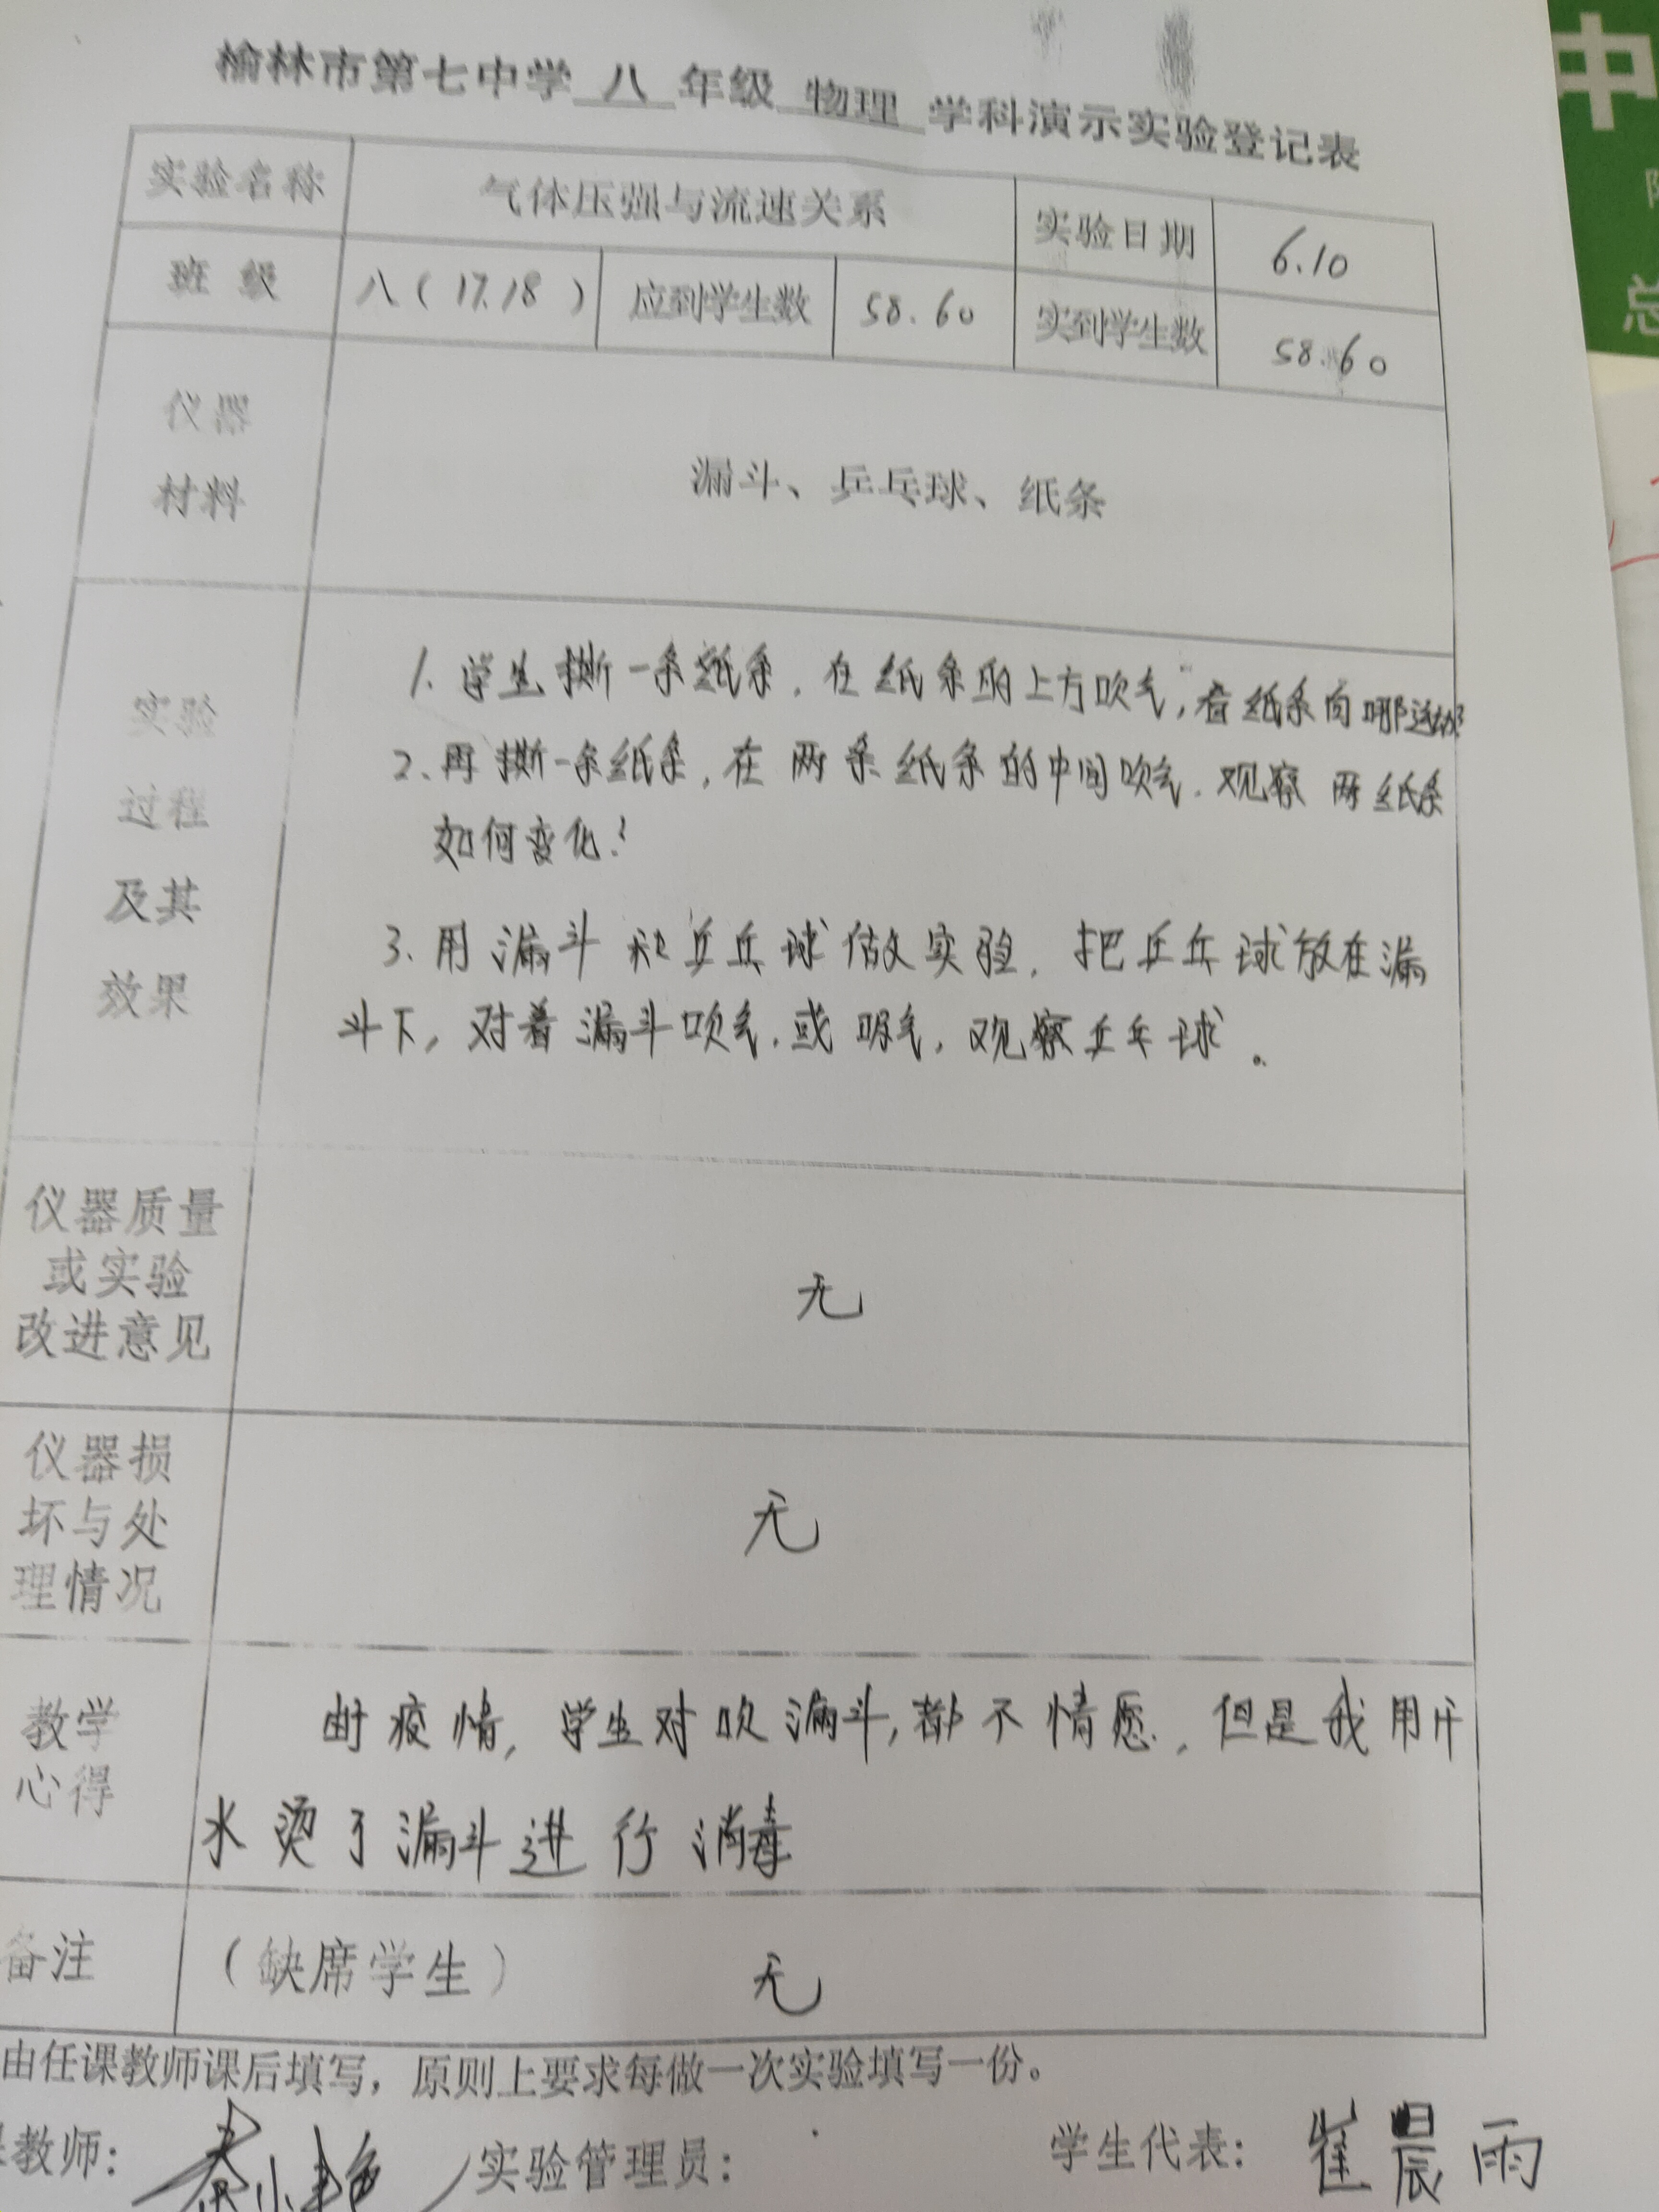 榆林市第七中学 八 年级 物理 学科演示实验登记表
实验名称 气体压强与流速关系 实验日期 6.10
班 级 八（17.18） 应到学生数 58.60 实到学生数 58.60
仪器
材料
漏斗、乒乓球、纸条
实验
过程
及其
效果
1. 学生撕一条纸条，在纸条的上方吹气，看纸条向哪运动?
2、再撕一条纸条，在两条纸条的中间吹气，观察两纸条
如何变化?
3、用漏斗和乒乓球做实验，把乒乓球放在漏
斗下，对着漏斗吹气，或吸气，观察乒乓球。
仪器质量
或实验
改进意见
无
仪器损
坏与处
理情况
无
教学
心得
由于疫情，学生对吹漏斗，都不情愿，但是我用开
水烫了漏斗进行消毒
备注 （缺席学生） 无
由任课教师课后填写，原则上要求每做一次实验填写一份。
教师： 实验管理员： 学生代表：崔晨雨
中
总